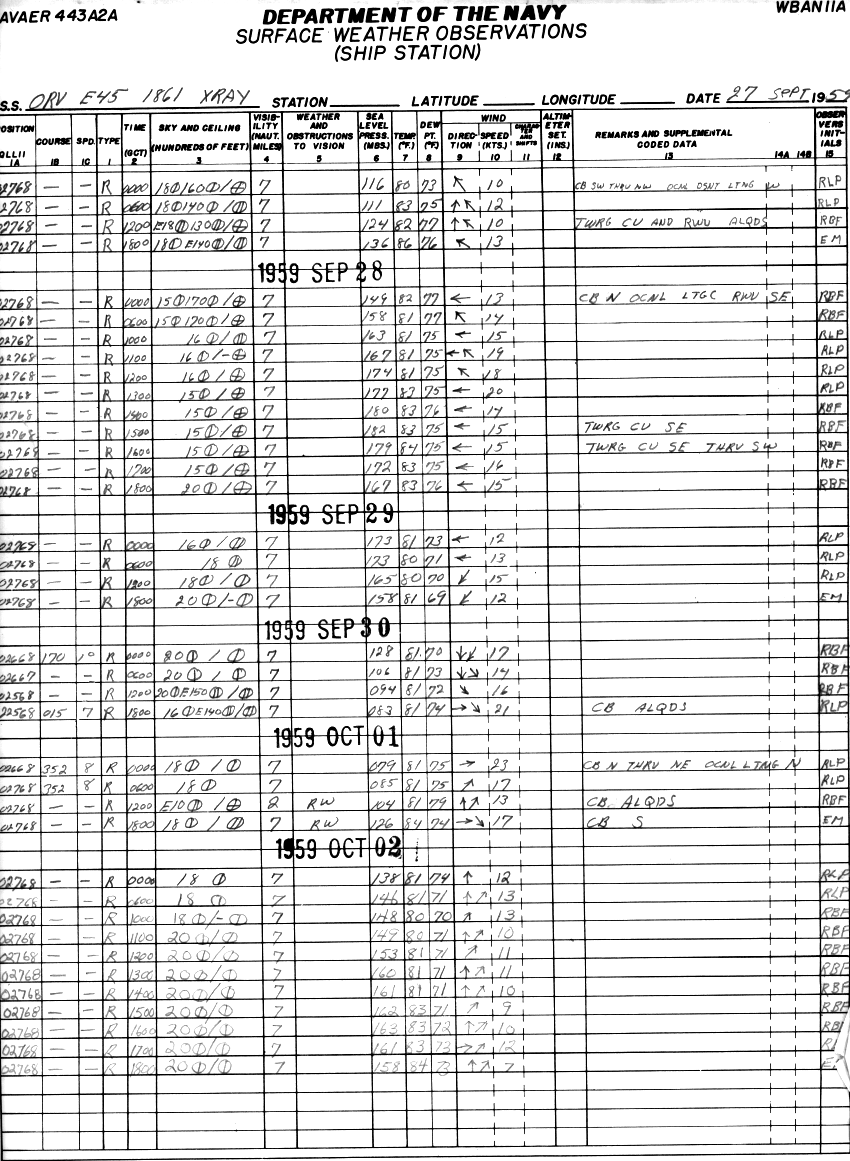 AVAER 443A2A
DEPARTMENT OF THE NAVY
WBAN 11A
SURFACE WEATHER OBSERVATIONS
(SHIP STATION)
S.S. ORV E45 1861 XRAY STATION LATITUDE LONGITUDE DATE 27 SEPT 1959
OSITION QLL11 1A COURSE 1B SPD. 1C TYPE 1 TIME (GCT) 2 SKY AND CEILING (HUNDREDS OF FEET) 3 VISIBILITY (NAUT. MILES) 4 WEATHER AND OBSTRUCTIONS TO VISION 5 SEA LEVEL PRESS. (MBS.) 6 TEMP. (°F.) 7 DEW PT. (°F.) 8 WIND DIRECTION 9 SPEED (KTS.) 10 CHARACTER AND SHIFTS 11 ALTIMETER SET. (INS.) 12 REMARKS AND SUPPLEMENTAL CODED DATA 13 14A 14B OBSERVERS INITIALS 15
02768 — — R 0000 18⦶160⦶/⊕ 7 116 80 73 ↖ 10 CB SW THRU NW OCNL DSNT LTNG W RLP
02768 — — R 0600 18⦶140⦶/⊕ 7 111 83 75 ↑↖ 12 RLP
02768 — — R 1200 E18⦶130⦶/⊕ 7 124 82 77 ↑↖ 10 TWRG CU AND RWU ALQDS RBF
02768 — — R 1800 18⦶E140⦶/⦶ 7 136 86 76 ↖ 13 EM
1959 SEP 28
02768 — — R 0000 15⦶170⦶/⊕ 7 149 82 77 ← 13 CB N OCNL LTGC RWU SE RBF
02768 — — R 0600 15⦶170⦶/⊕ 7 158 81 77 ↖ 14 RBF
02768 — — R 1000 16⦶/⦶ 7 163 81 75 ← 15 RLP
02768 — — R 1100 16⦶/-⊕ 7 167 81 75 ←↖ 19 RLP
02768 — — R 1200 16⦶/⊕ 7 174 81 75 ↖ 18 RLP
02768 — — R 1300 15⦶/⊕ 7 177 83 75 ← 20 RLP
02768 — — R 1400 15⦶/⊕ 7 180 83 76 ← 14 RBF
02768 — — R 1500 15⦶/⊕ 7 182 83 75 ← 15 TWRG CU SE RBF
02768 — — R 1600 15⦶/⊕ 7 179 84 75 ← 15 TWRG CU SE THRU SW RBF
02768 — — R 1700 15⦶/⊕ 7 172 83 75 ← 16 RBF
02768 — — R 1800 20⦶/⊕ 7 167 83 76 ← 15 RBF
1959 SEP 29
02768 — — R 0000 16⦶/⦶ 7 173 81 73 ← 12 RLP
02768 — — R 0600 18⦶ 7 173 80 71 ← 13 RLP
02768 — — R 1200 18⦶/⦶ 7 165 80 70 ↙ 15 RLP
02768 — — R 1800 20⦶/-⦶ 7 158 81 69 ↙ 12 EM
1959 SEP 30
02668 170 10 R 0000 20⦶/⦶ 7 128 81 70 ↓↓ 17 RBF
02667 — — R 0600 20⦶/⦶ 7 106 81 73 ↓↘ 14 RBF
02568 — — R 1200 20⦶E150⦶/⦶ 7 094 81 72 ↘ 16 RBF
22568 015 7 R 1800 16⦶E140⦶/⦶ 7 083 81 74 →↘ 21 CB ALQDS RLP
1959 OCT 01
02668 352 8 R 0000 18⦶/⦶ 7 079 81 75 → 23 CB N THRU NE OCNL LTNG N RLP
02768 352 8 R 0600 18⦶ 7 085 81 75 ↗ 17 RLP
02768 — — R 1200 E10⦶/⊕ 2 RW 104 81 79 ↑↗ 13 CB ALQDS RBF
02768 — — R 1800 18⦶/⦶ 7 RW 126 84 74 →↘ 17 CB S EM
1959 OCT 02
02768 — — R 0000 18⦶ 7 138 81 74 ↑ 12 RLP
02768 — — R 0600 18⦶ 7 146 81 71 ↑↗ 13 RLP
02768 — — R 1000 18⦶/-⦶ 7 148 80 70 ↗ 13 RBF
02768 — — R 1100 20⦶/⦶ 7 149 80 71 ↑↗ 10 RBF
02768 — — R 1200 20⦶/⦶ 7 153 81 71 ↗ 11 RBF
02768 — — R 1300 20⦶/⦶ 7 160 81 71 ↑↗ 11 RBF
02768 — — R 1400 20⦶/⦶ 7 161 81 71 ↑↗ 10 RBF
02768 — — R 1500 20⦶/⦶ 7 162 83 71 ↗ 9 RBF
02768 — — R 1600 20⦶/⦶ 7 163 83 72 ↑↗ 10 RB
02768 — — R 1700 20⦶/⦶ 7 161 83 73 →↗ 12 R
02768 — — R 1800 20⦶/⦶ 7 158 84 73 ↑↗ 7 E